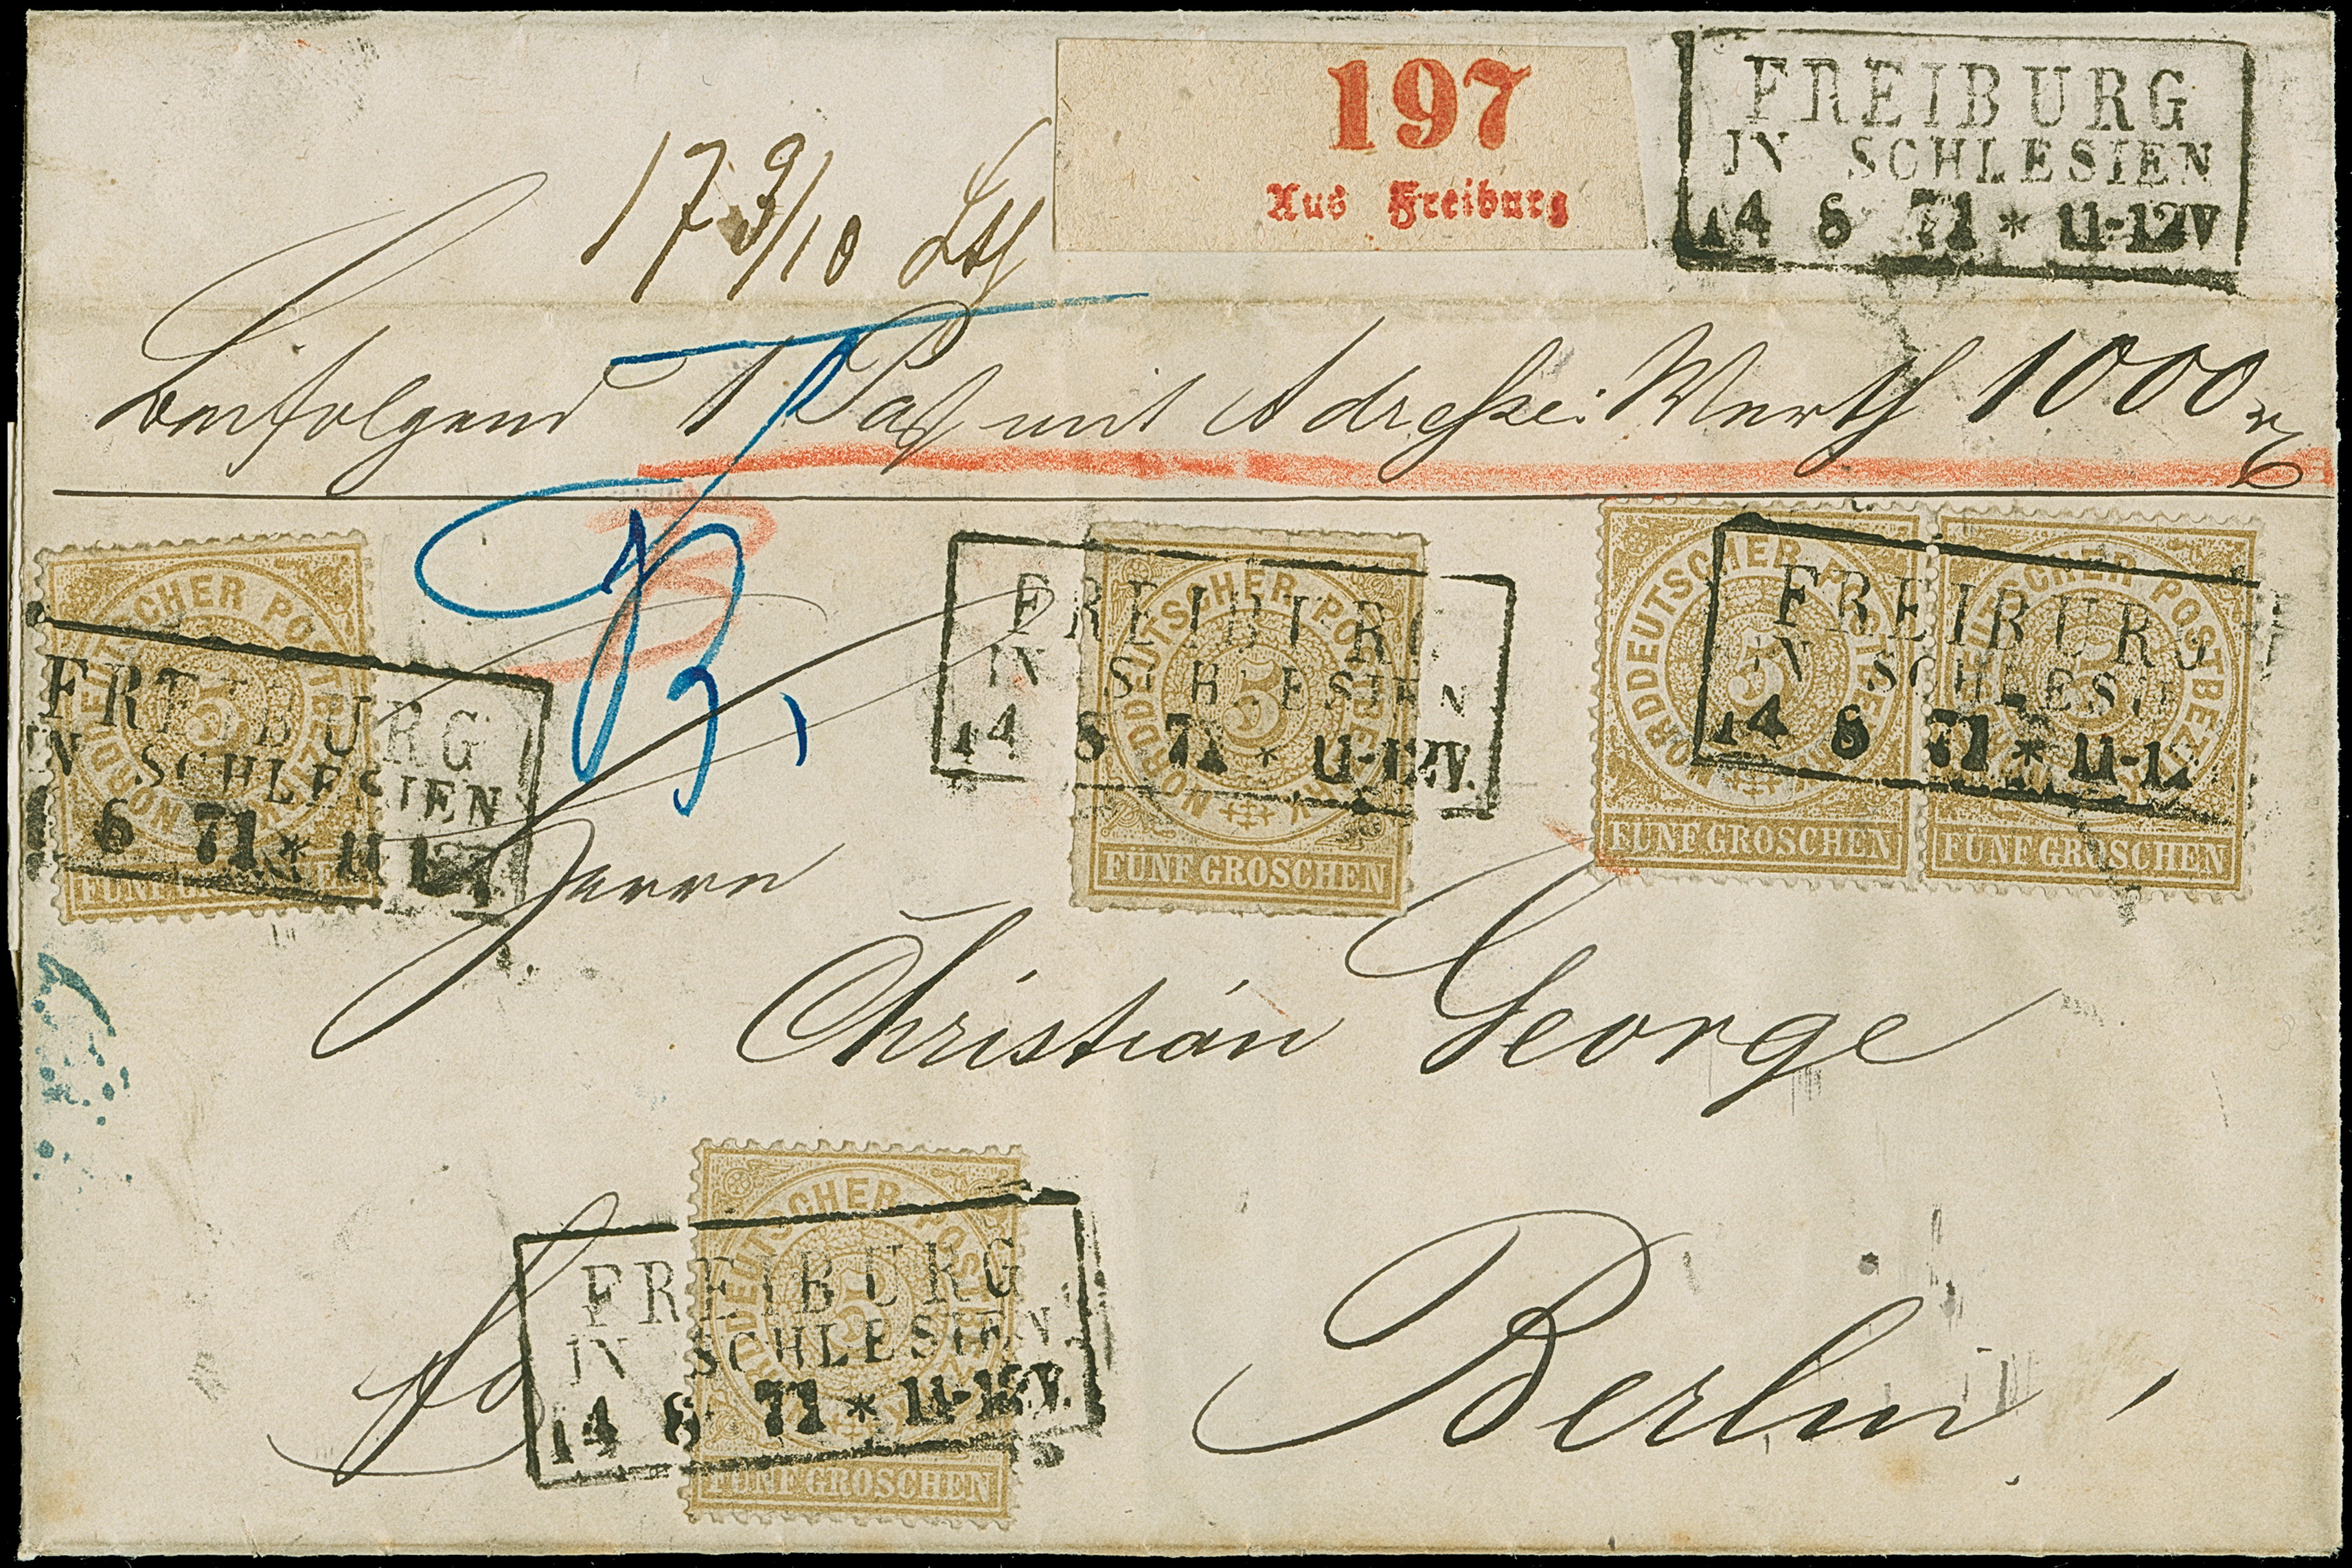 197
Aus Freiburg
FREIBURG
IN SCHLESIEN
14 6 71 * 11-12V
17 9/10 Lth
Beifolgend 1 Pack mit Adresse: Werth 1000
NORDDEUTSCHER POSTBEZIRK
5
FÜNF GROSCHEN
FREIBURG
IN SCHLESIEN
6 71 * 11-12
NORDDEUTSCHER POSTBEZIRK
5
FÜNF GROSCHEN
FREIBURG
IN SCHLESIEN
14 6 71 * 11-12V.
NORDDEUTSCHER POSTBEZIRK
5
FÜNF GROSCHEN
NORDDEUTSCHER POSTBEZIRK
5
FÜNF GROSCHEN
FREIBURG
IN SCHLESIEN
14 6 71 * 11-12
Herrn
Christian George
NORDDEUTSCHER POSTBEZIRK
5
FÜNF GROSCHEN
FREIBURG
IN SCHLESIEN
14 6 71 * 11-12V.
Berlin